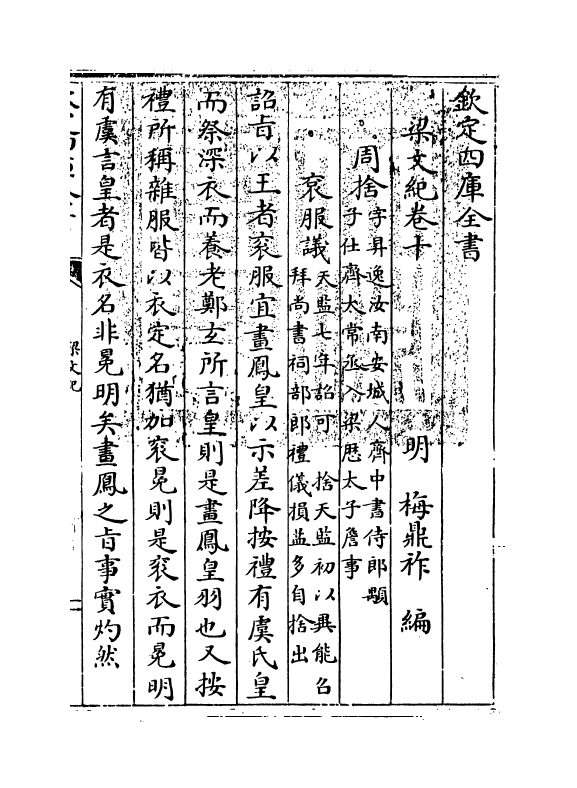 欽定四庫全書
梁文紀卷十　明　梅鼎祚　編
周捨字昇逸汝南安城人齊中書侍郎顒
子仕齊太常丞入梁歷太子詹事
衮服議天監七年詔可　捨天監初以異能召
拜尚書祠部郎禮儀損益多自捨出
詔旨以王者衮服宜畫鳳皇以示差降按禮有虞氏皇
而祭深衣而養老鄭玄所言皇則是畫鳳皇羽也又按
禮所稱雜服皆以衣定名猶加衮冕則是衮衣而冕明
有虞言皇者是衣名非冕明矣畫鳳之旨事實灼然
梁文紀